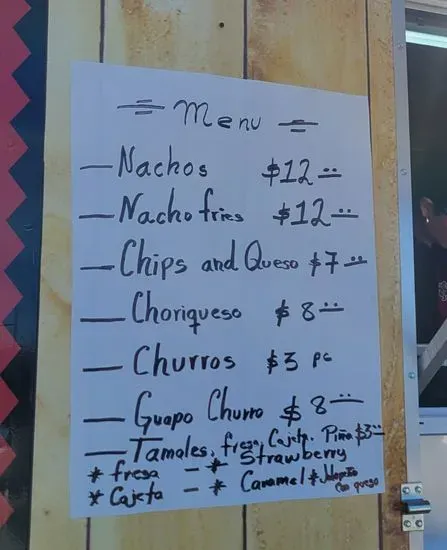 Menu
— Nachos $12
— Nacho fries $12
— Chips and Queso $7
— Choriqueso $8
— Churros $3 pc
— Guapo Churro $8
— Tamales, fresa, Cajeta, Piña $3
* fresa – * Strawberry
* Cajeta – * Caramel * Jalapeño
Con queso